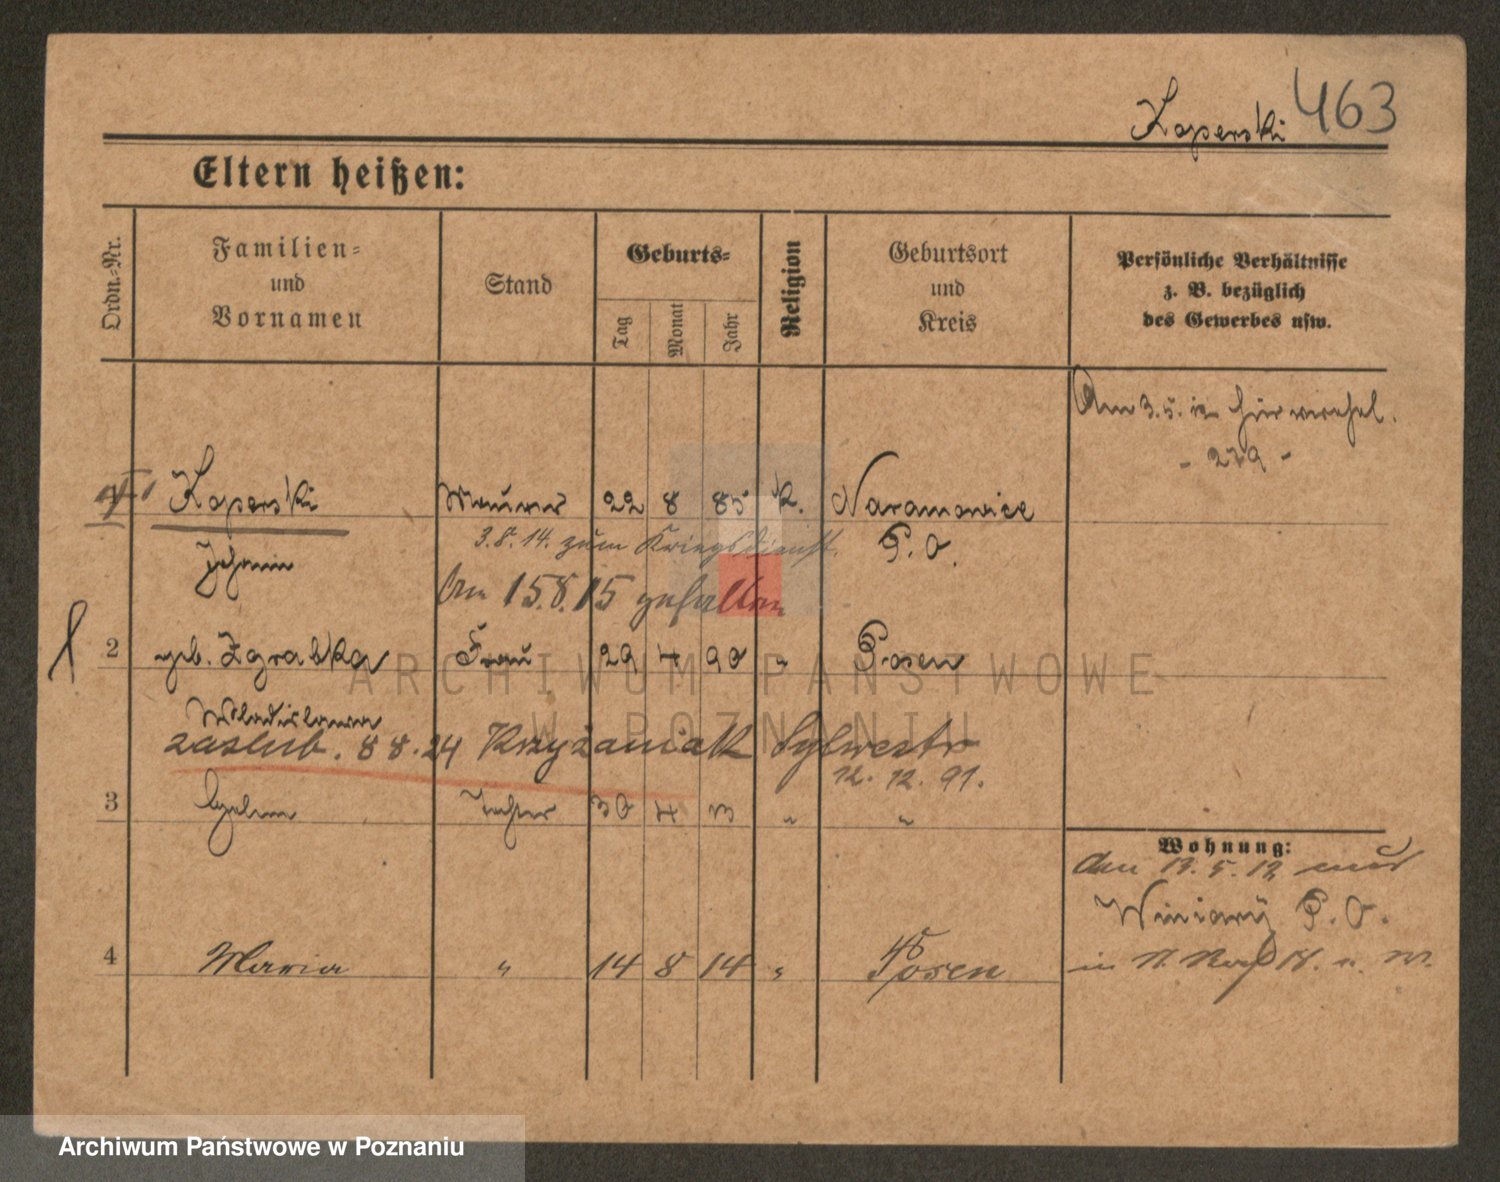 Koperski 463
Eltern heißen:
Ordn.-Nr.
Familien-
und
Vornamen
Stand
Geburts-
Tag
Monat
Jahr
Religion
Geburtsort
und
Kreis
Persönliche Verhältnisse
z. B. bezüglich
des Gewerbes usw.
Am 3.5.12 hier
- 279 -
Koperski Maurer 22 8 85 k. Naramowice
3.8.14. zum Kriegsdienst. P. O.
Johann
Am 15.8.15 gefallen
2 geb. Zgrabka Frau 29 4 90 " Posen
Wladislawa
zaslub. 8 8.24 Krzyżaniak Sylwestr
12. 12. 91.
3 Helene Tochter 30 4 13 " "
Wohnung:
den 13.5.12 nach
Winiary P. O.
4 Maria " 14 8 14 " Posen
ARCHIWUM PAŃSTWOWE
W POZNANIU
Archiwum Państwowe w Poznaniu